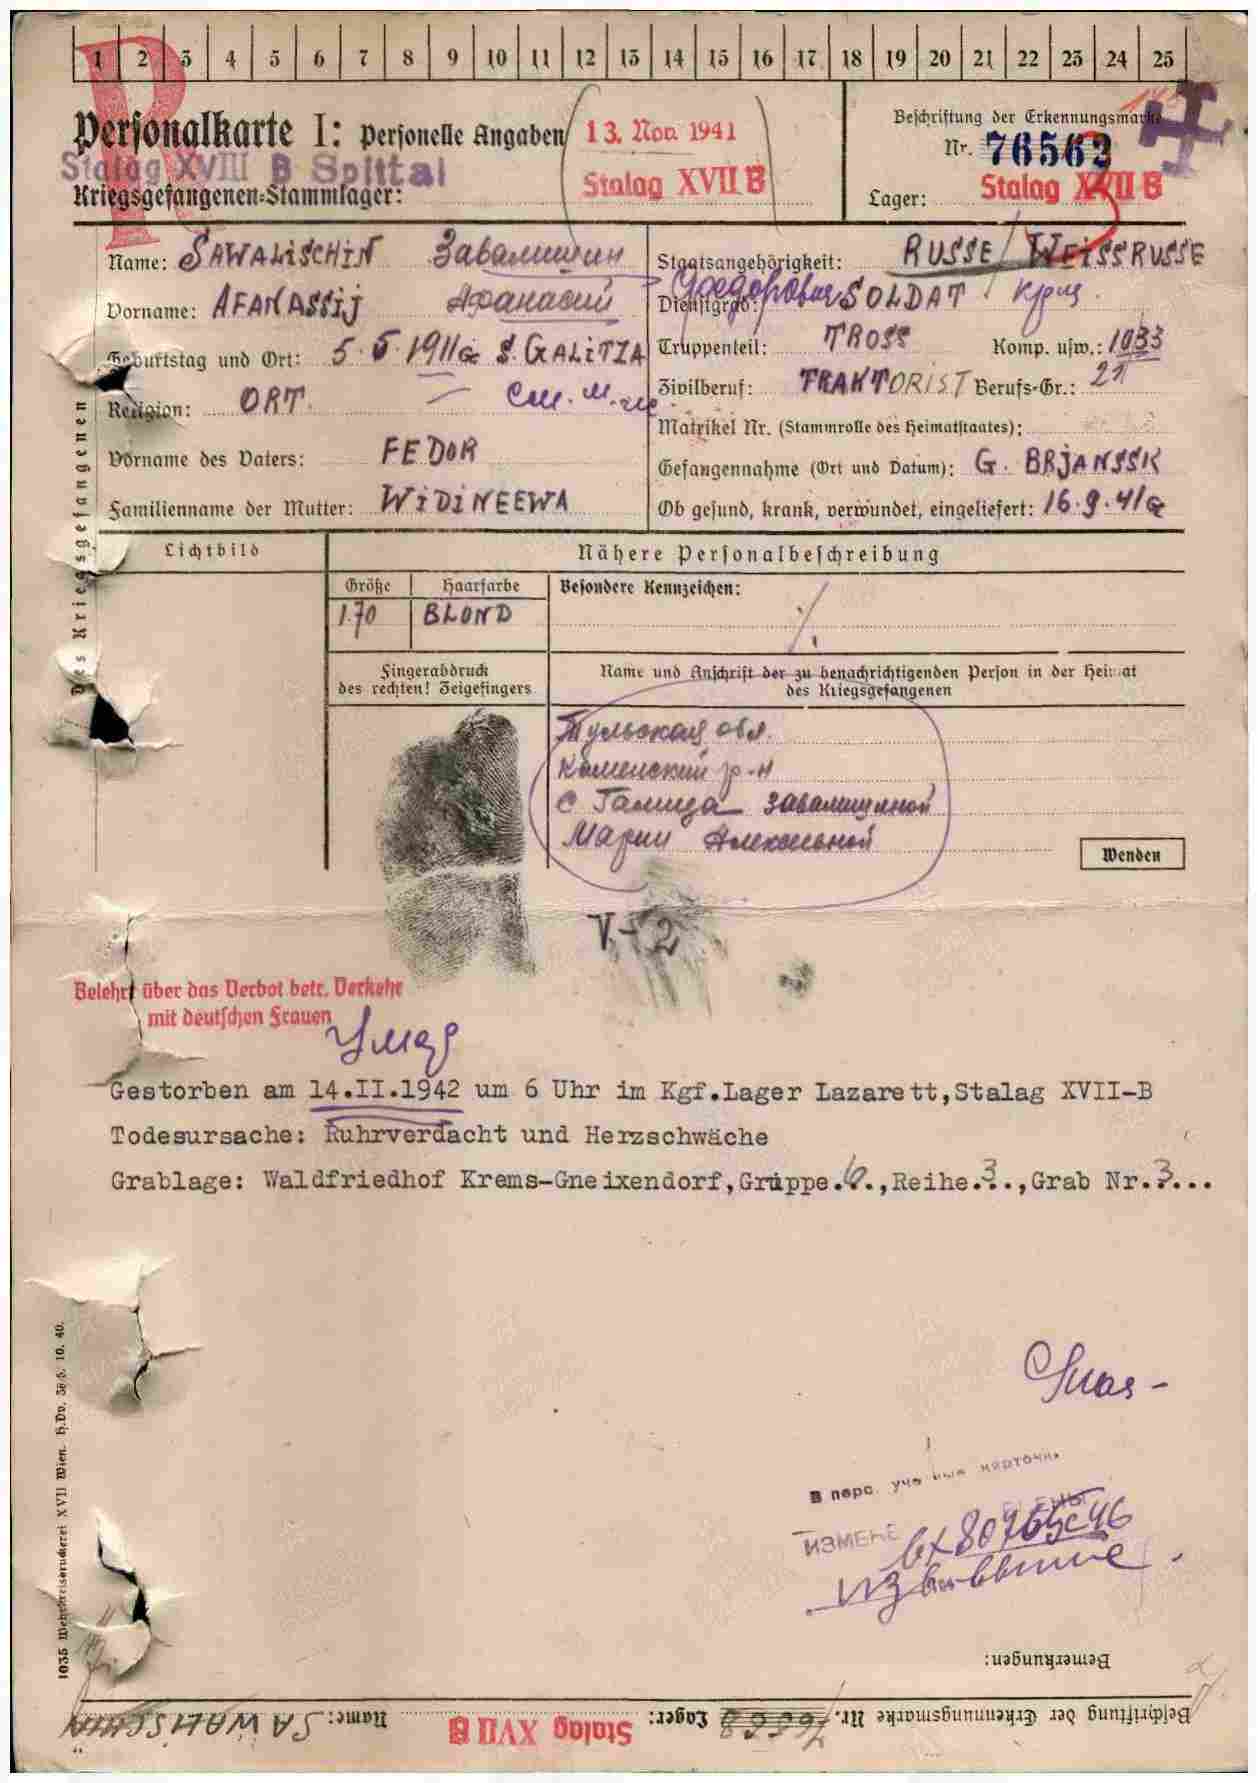 1 2 3 4 5 6 7 8 9 10 11 12 13 14 15 16 17 18 19 20 21 22 23 24 25
R
Personalkarte I: Personelle Angaben
13. Nov. 1941
Beschriftung der Erkennungsmarke
Nr. 76563
Stalag XVIII B Spittal
Kriegsgefangenen=Stammlager:
Stalag XVII B
Lager: Stalag XVII B
Name: SAWALISCHIN Завалишин
Staatsangehörigkeit: RUSSE / WEISSRUSSE
Федорович
Vorname: AFANASSIJ Афанасий
Dienstgrad: SOLDAT
Geburtstag und Ort: 5.5.1911 S. GALITZA
Truppenteil: TROSS Komp. usw.: 1033
Religion: ORT.
См. м.
Zivilberuf: TRAKTORIST Berufs-Gr.: 21
Matrikel Nr. (Stammrolle des Heimatstaates):
Vorname des Vaters: FEDOR
Gefangennahme (Ort und Datum): G. BRJANSSK
Familienname der Mutter: WIDINEEWA
Ob gesund, krank, verwundet, eingeliefert: 16.9.41
des Kriegsgefangenen
Lichtbild
Nähere Personalbeschreibung
Größe Haarfarbe Besondere Kennzeichen:
1.70 BLOND
Fingerabdruck
des rechten! Zeigefingers
Name und Anschrift der zu benachrichtigenden Person in der Heimat
des Kriegsgefangenen
Тульская обл.
Каменский р-н
с Галица Завалишиной
Марии Алексевной
Wenden
V.-2
Belehrt über das Verbot betr. Verkehr
mit deutschen Frauen
Gestorben am 14.II.1942 um 6 Uhr im Kgf.Lager Lazarett,Stalag XVII-B
Todesursache: Ruhrverdacht und Herzschwäche
Grablage: Waldfriedhof Krems-Gneixendorf,Gruppe.6.,Reihe.3..,Grab Nr.3...
1035 Wehrkreisdruckerei XVII Wien. H.Dv. 38/5. 10. 40.
В перс. учетные карточки
ИЗМЕНЕ
вх 80765с 46
Bemerkungen:
Beschriftung der Erkennungsmarke Nr. 76563 Lager: Stalag XVII B Name: SAWALISCHIN